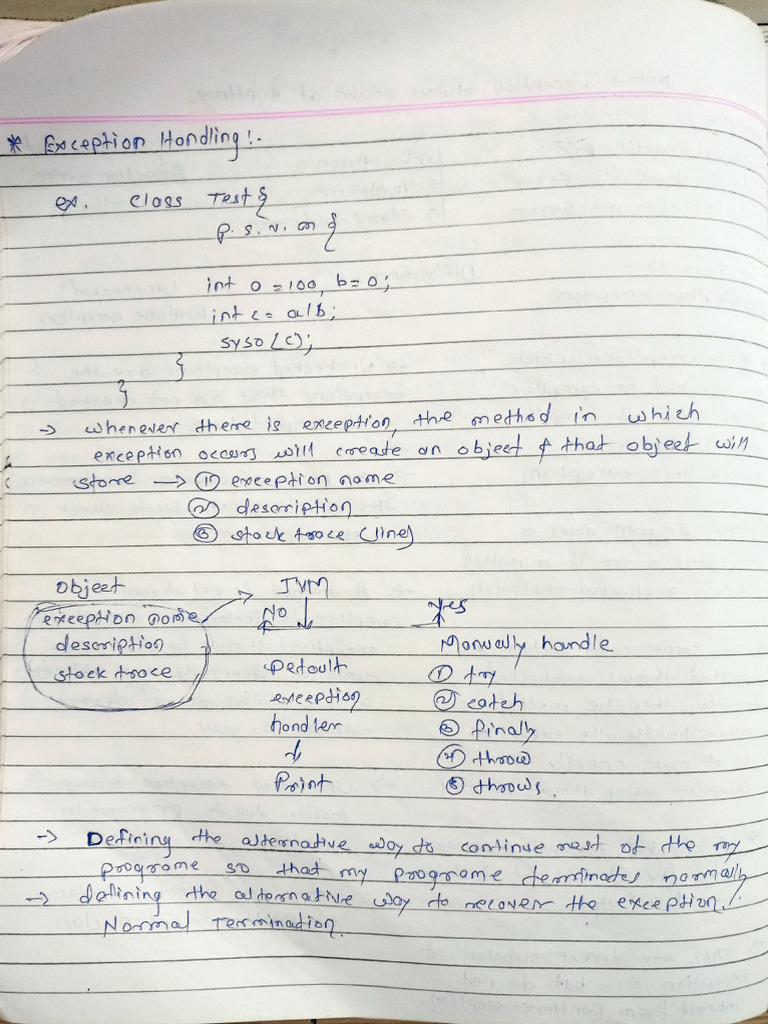 * Exception Handling!-
ex. class Test{
p. s. v. m {
int a = 100, b = 0;
int c = a/b;
syso (c);
}
}
→ whenever there is exception, the method in which
exception occurs will create an object & that object will
store → (1) exception name
(2) description
(3) stack trace (line)
object JVM
exception name No Yes
description Manually handle
stack trace Default (1) try
exception (2) catch
handler (3) finally
↓ (4) throw
Print (5) throws.
→ Defining the alternative way to continue rest of the my
programe so that my programe terminates normally
→ defining the alternative way to recover the exception.
Normal Termination.